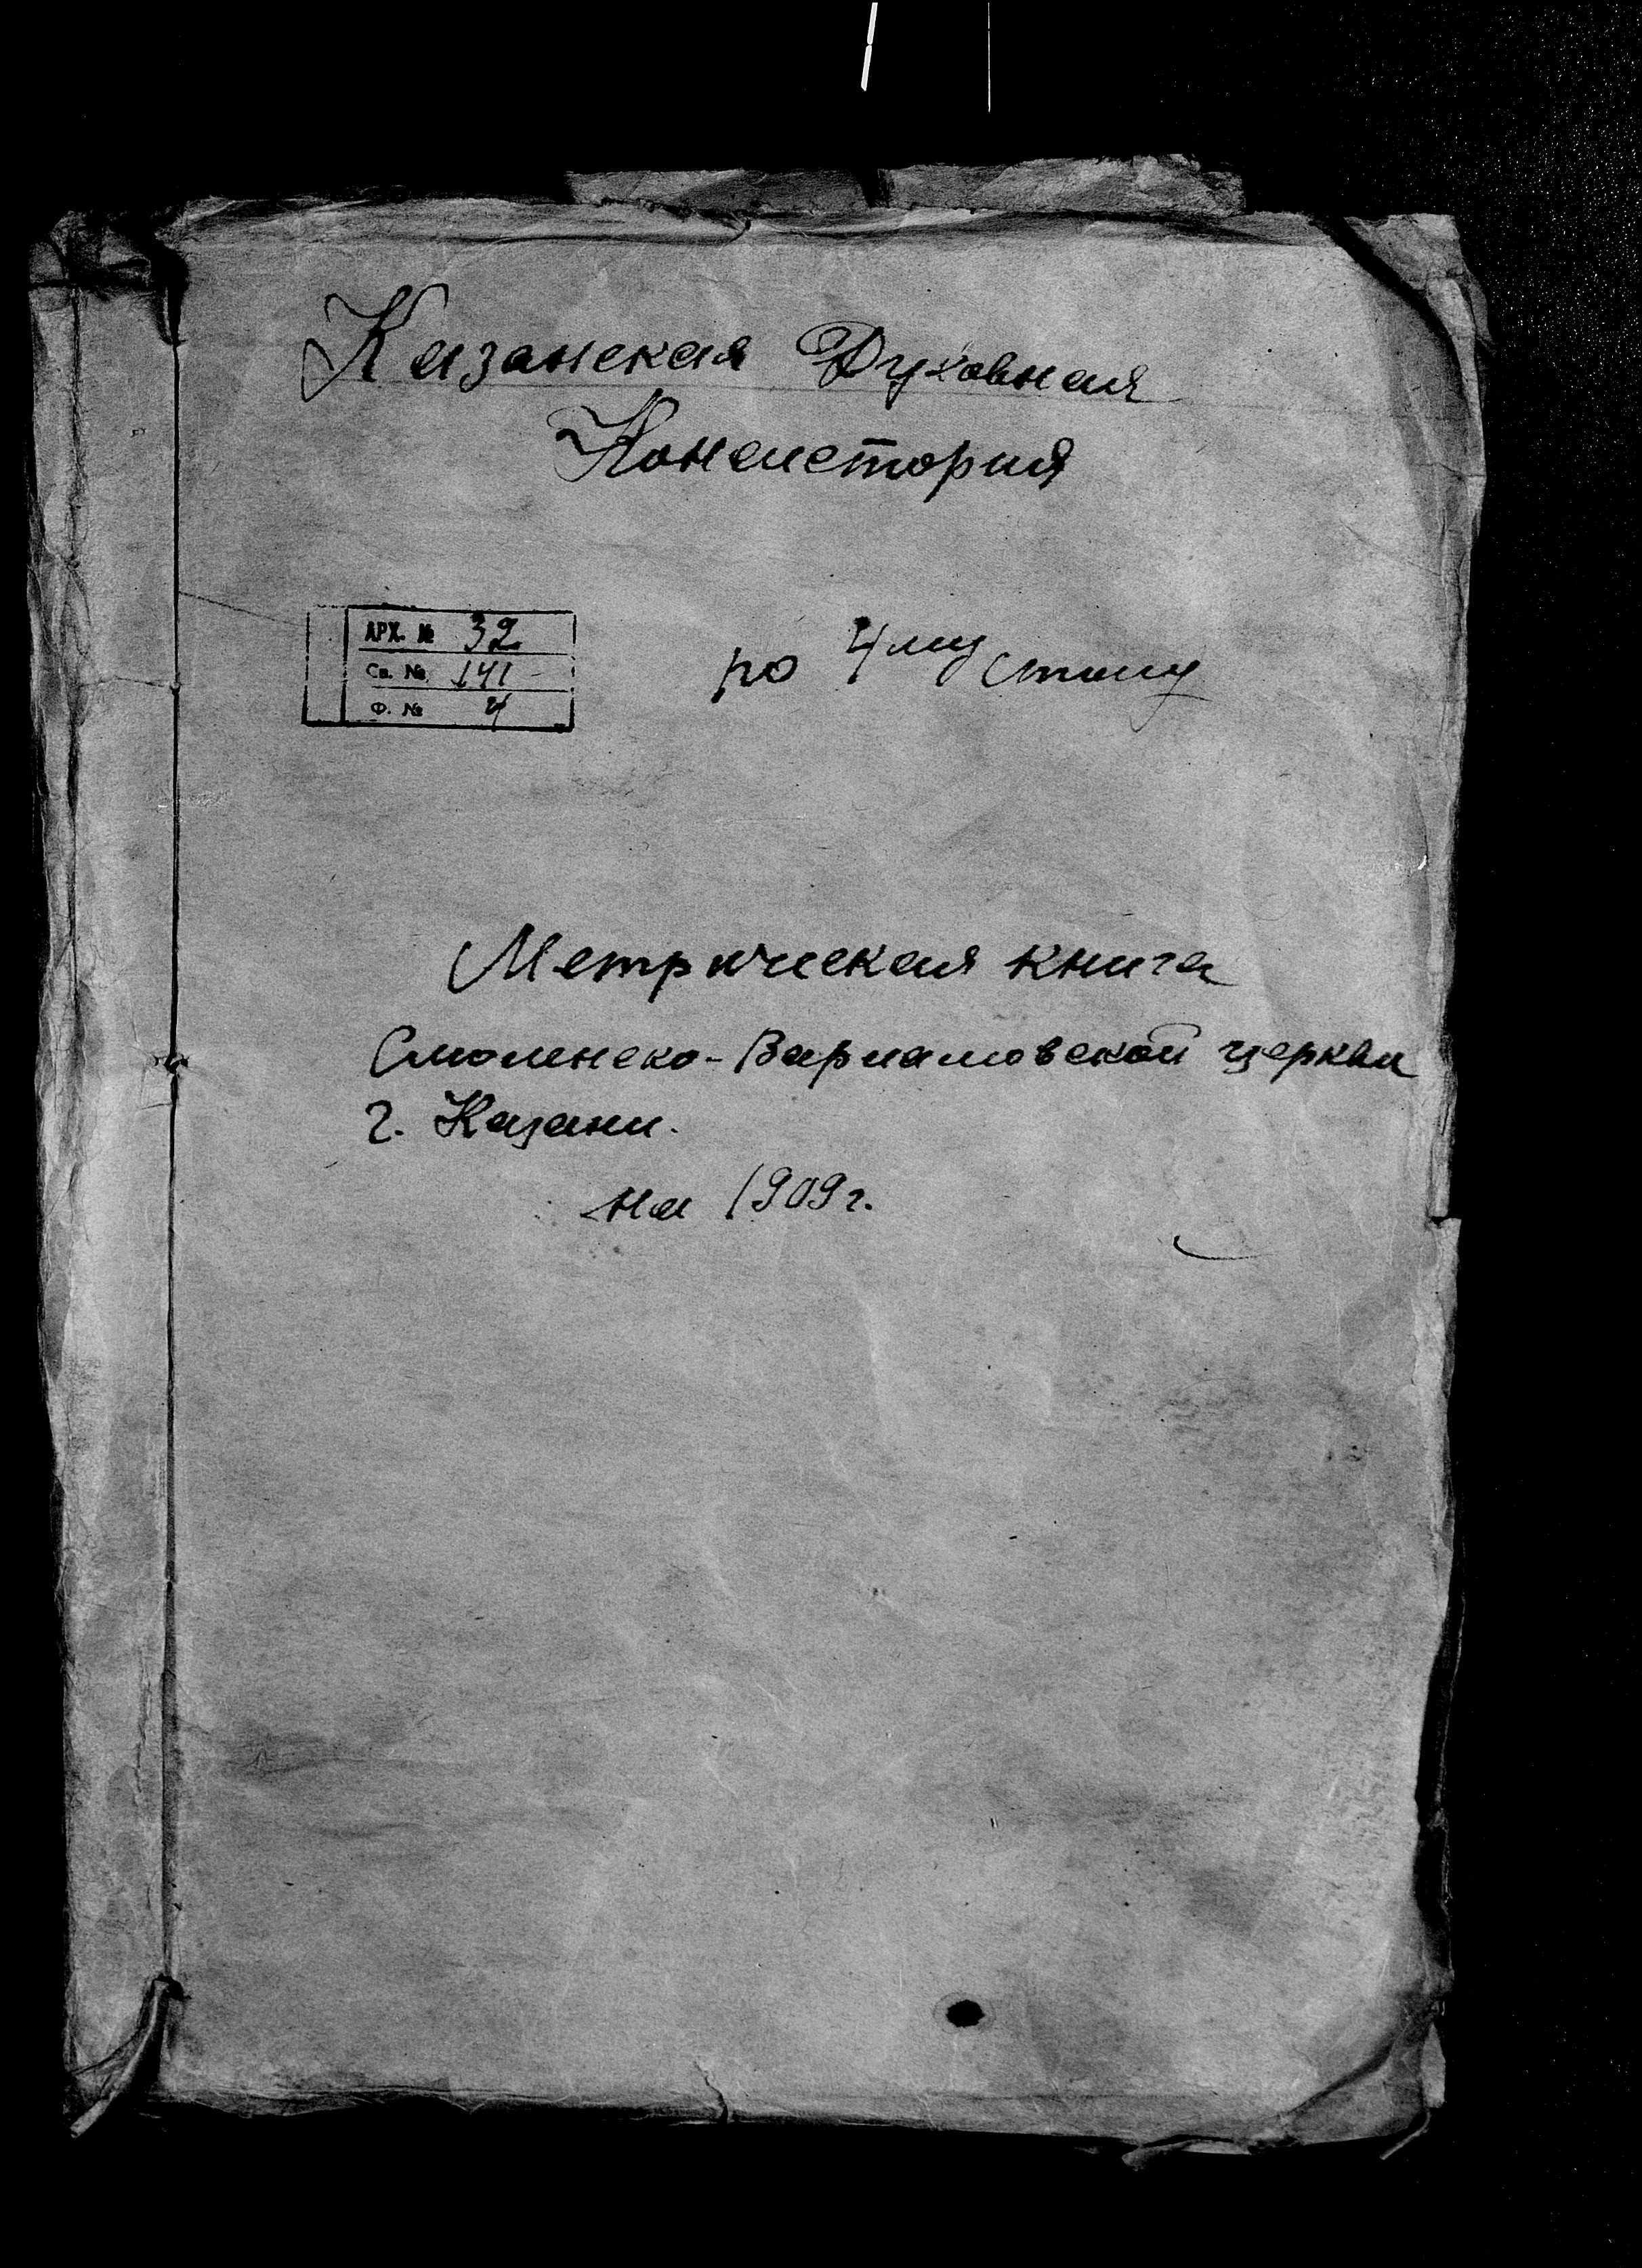 Казанская Духовная
Консистория
АРХ. № 32
Св. № 141
Ф. № 4
по 4му столу
Метрическая книга
Смоленско-Варламовской церкви
г. Казани.
на 1909 г.